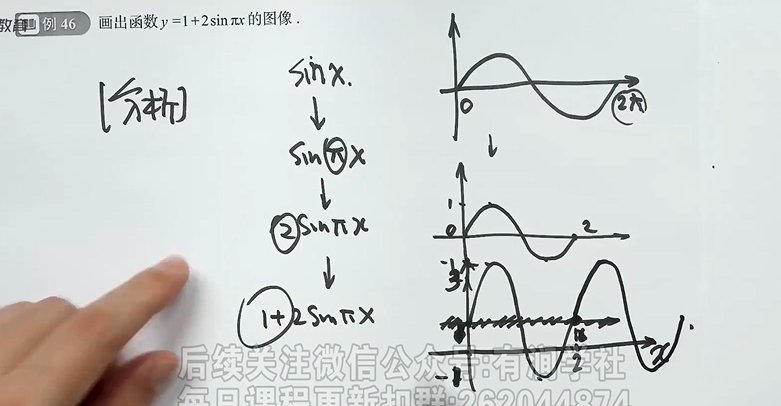 教育 例 46 画出函数 y =1+2sin πx 的图像.
[分析]
sin x.
sin πx
2 sin πx
1+2 sin πx
0
2π
1
0
2
3
2
-1
x
后续关注微信公众号:有渔学社
每日课程更新扣群:262044874